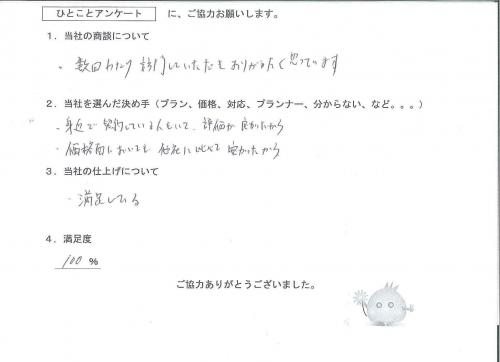 ひとことアンケート に、ご協力お願いします。
1．当社の商談について
・数回わたり 訪問していただき ありがたく 思っています
2．当社を選んだ決め手（プラン、価格、対応、プランナー、分からない、など。。。）
・身近で 契約している人もいて、評価が 良かったから
・価格面においても 他社に比べて 良かったから
3．当社の仕上げについて
・満足している
4．満足度
100 %
ご協力ありがとうございました。